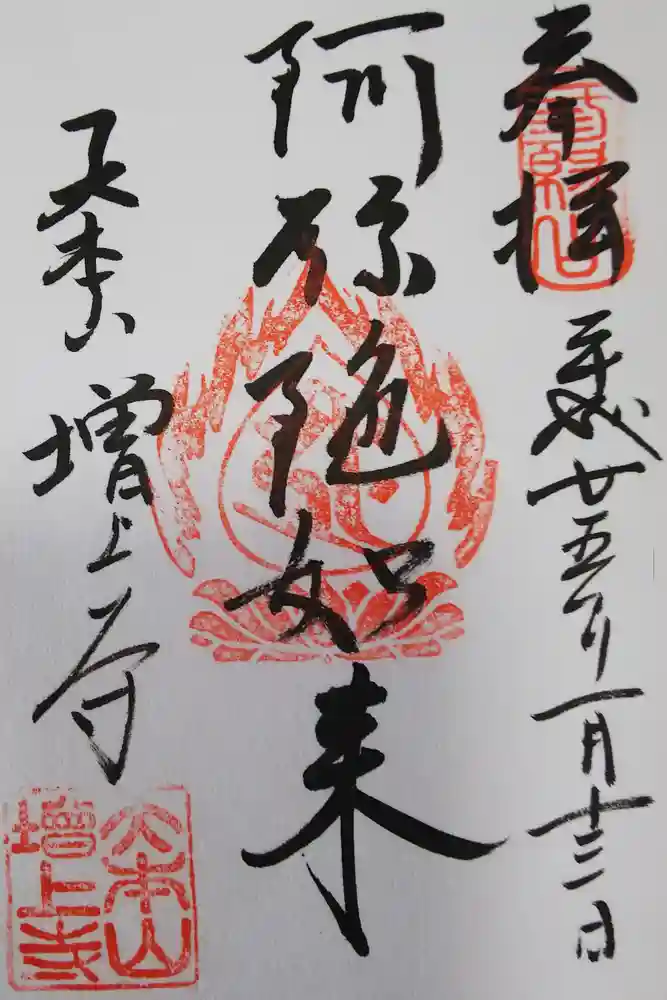 奉拝
平成廿五年一月十二日
阿弥陀如来
大本山
増上寺
大本山
増上寺